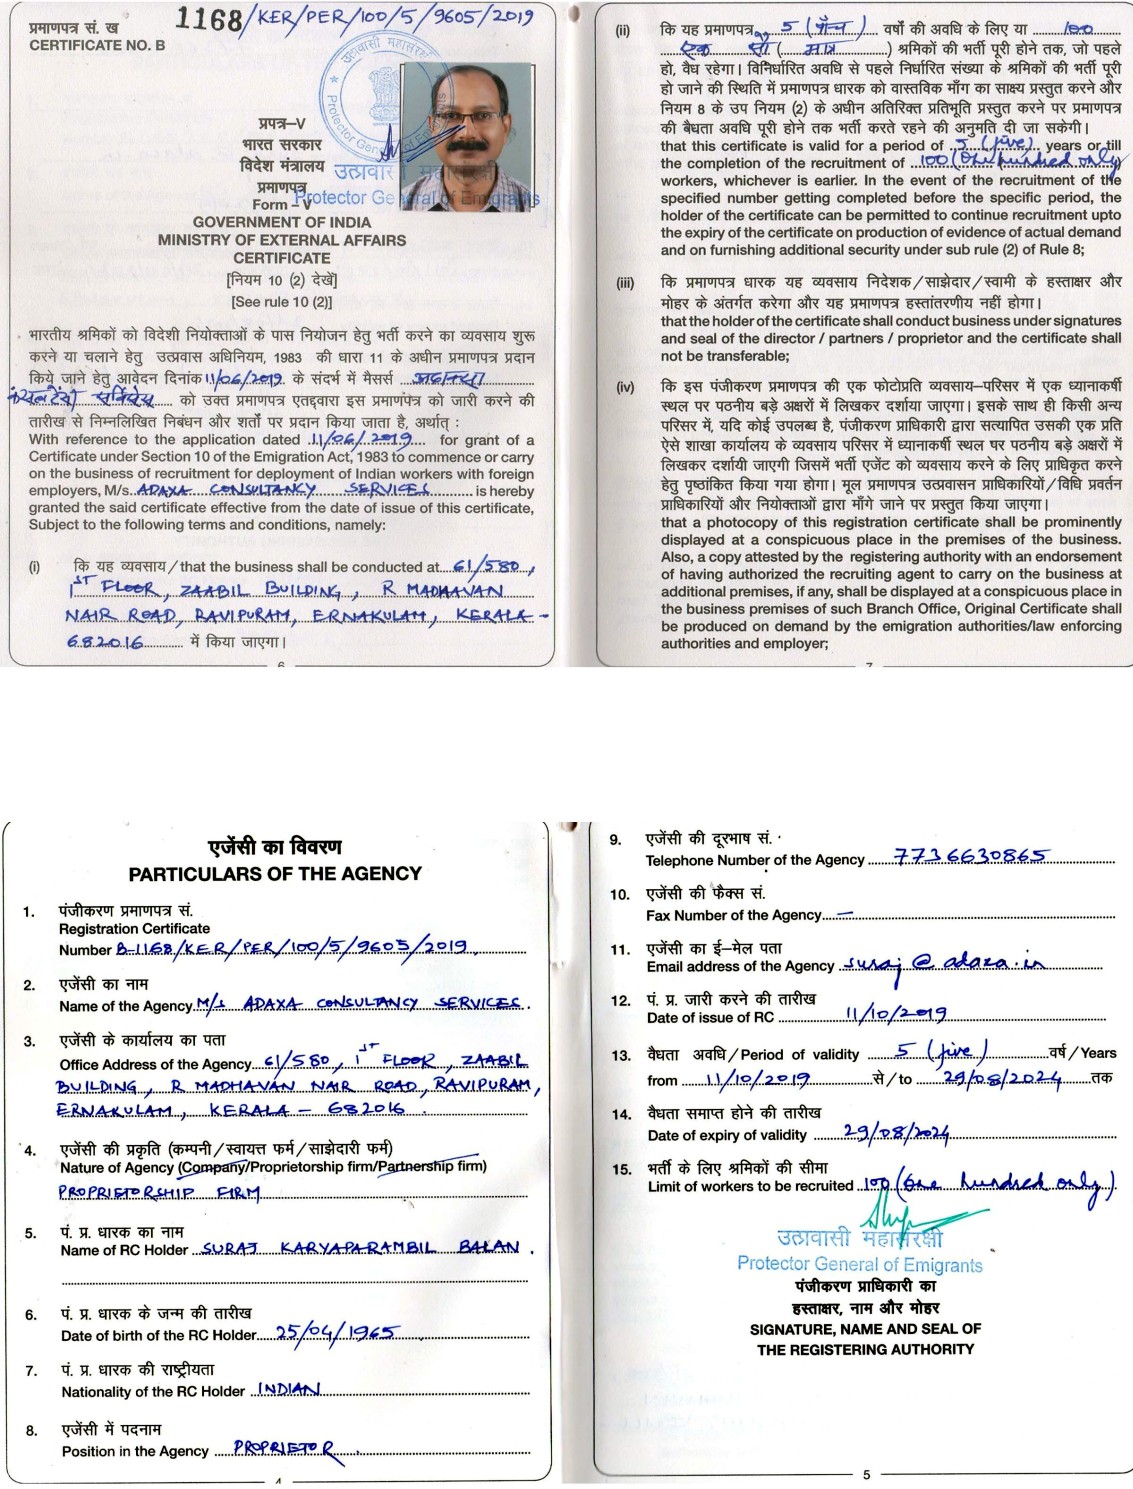 प्रमाणपत्र सं. ख
CERTIFICATE NO. B
1168/KER/PER/100/5/9605/2019
उत्प्रवासी महासंरक्षी
Protector General of Emigrants
प्रपत्र–V
भारत सरकार
विदेश मंत्रालय
प्रमाणपत्र
Form – V
उत्प्रवासी महासंरक्षी
Protector General of Emigrants
GOVERNMENT OF INDIA
MINISTRY OF EXTERNAL AFFAIRS
CERTIFICATE
[नियम 10 (2) देखें]
[See rule 10 (2)]
भारतीय श्रमिकों को विदेशी नियोक्ताओं के पास नियोजन हेतु भर्ती करने का व्यवसाय शुरू
करने या चलाने हेतु उत्प्रवास अधिनियम, 1983 की धारा 11 के अधीन प्रमाणपत्र प्रदान
किये जाने हेतु आवेदन दिनांक 11/06/2019 के संदर्भ में मैसर्स
को उक्त प्रमाणपत्र एतद्द्वारा इस प्रमाणपत्र को जारी करने की
तारीख से निम्नलिखित निबंधन और शर्तों पर प्रदान किया जाता है, अर्थात् :
With reference to the application dated 11/06/2019 for grant of a
Certificate under Section 10 of the Emigration Act, 1983 to commence or carry
on the business of recruitment for deployment of Indian workers with foreign
employers, M/s. ADAXA CONSULTANCY SERVICES is hereby
granted the said certificate effective from the date of issue of this certificate,
Subject to the following terms and conditions, namely:
(i) कि यह व्यवसाय/that the business shall be conducted at 61/580,
1ST FLOOR, ZAABIL BUILDING, R MADHAVAN
NAIR ROAD, RAVIPURAM, ERNAKULAM, KERALA -
682016 में किया जाएगा।
6
(ii) कि यह प्रमाणपत्र 5 (पाँच) वर्षों की अवधि के लिए या 100
एक सौ (मात्र) श्रमिकों की भर्ती पूरी होने तक, जो पहले
हो, वैध रहेगा। विनिर्धारित अवधि से पहले निर्धारित संख्या के श्रमिकों की भर्ती पूरी
हो जाने की स्थिति में प्रमाणपत्र धारक को वास्तविक माँग का साक्ष्य प्रस्तुत करने और
नियम 8 के उप नियम (2) के अधीन अतिरिक्त प्रतिभूति प्रस्तुत करने पर प्रमाणपत्र
की वैधता अवधि पूरी होने तक भर्ती करते रहने की अनुमति दी जा सकेगी।
that this certificate is valid for a period of 5 (five) years or till
the completion of the recruitment of 100 (One hundred only)
workers, whichever is earlier. In the event of the recruitment of the
specified number getting completed before the specific period, the
holder of the certificate can be permitted to continue recruitment upto
the expiry of the certificate on production of evidence of actual demand
and on furnishing additional security under sub rule (2) of Rule 8;
(iii) कि प्रमाणपत्र धारक यह व्यवसाय निदेशक/साझेदार/स्वामी के हस्ताक्षर और
मोहर के अंतर्गत करेगा और यह प्रमाणपत्र हस्तांतरणीय नहीं होगा।
that the holder of the certificate shall conduct business under signatures
and seal of the director / partners / proprietor and the certificate shall
not be transferable;
(iv) कि इस पंजीकरण प्रमाणपत्र की एक फोटोप्रति व्यवसाय–परिसर में एक ध्यानाकर्षी
स्थल पर पठनीय बड़े अक्षरों में लिखकर दर्शाया जाएगा। इसके साथ ही किसी अन्य
परिसर में, यदि कोई उपलब्ध है, पंजीकरण प्राधिकारी द्वारा सत्यापित उसकी एक प्रति
ऐसे शाखा कार्यालय के व्यवसाय परिसर में ध्यानाकर्षी स्थल पर पठनीय बड़े अक्षरों में
लिखकर दर्शायी जाएगी जिसमें भर्ती एजेंट को व्यवसाय करने के लिए प्राधिकृत करने
हेतु पृष्ठांकित किया गया होगा। मूल प्रमाणपत्र उत्प्रवासन प्राधिकारियों/विधि प्रवर्तन
प्राधिकारियों और नियोक्ताओं द्वारा माँगे जाने पर प्रस्तुत किया जाएगा।
that a photocopy of this registration certificate shall be prominently
displayed at a conspicuous place in the premises of the business.
Also, a copy attested by the registering authority with an endorsement
of having authorized the recruiting agent to carry on the business at
additional premises, if any, shall be displayed at a conspicuous place in
the business premises of such Branch Office, Original Certificate shall
be produced on demand by the emigration authorities/law enforcing
authorities and employer;
7
एजेंसी का विवरण
PARTICULARS OF THE AGENCY
1. पंजीकरण प्रमाणपत्र सं.
Registration Certificate
Number B-1168/KER/PER/100/5/9605/2019
2. एजेंसी का नाम
Name of the Agency M/s ADAXA CONSULTANCY SERVICES.
3. एजेंसी के कार्यालय का पता
Office Address of the Agency 61/580, 1ST FLOOR, ZAABIL
BUILDING, R MADHAVAN NAIR ROAD, RAVIPURAM,
ERNAKULAM, KERALA - 682016.
4. एजेंसी की प्रकृति (कम्पनी/स्वायत्त फर्म/साझेदारी फर्म)
Nature of Agency (Company/Proprietorship firm/Partnership firm)
PROPRIETORSHIP FIRM
5. पं. प्र. धारक का नाम
Name of RC Holder SURAJ KARYAPARAMBIL BALAN.
6. पं. प्र. धारक के जन्म की तारीख
Date of birth of the RC Holder 25/04/1965
7. पं. प्र. धारक की राष्ट्रीयता
Nationality of the RC Holder INDIAN
8. एजेंसी में पदनाम
Position in the Agency PROPRIETOR
4
9. एजेंसी की दूरभाष सं.
Telephone Number of the Agency 7736630865
10. एजेंसी की फैक्स सं.
Fax Number of the Agency —
11. एजेंसी का ई–मेल पता
Email address of the Agency suraj@adaxa.in
12. पं. प्र. जारी करने की तारीख
Date of issue of RC 11/10/2019
13. वैधता अवधि/Period of validity 5 (five) वर्ष/Years
from 11/10/2019 से/to 29/08/2024 तक
14. वैधता समाप्त होने की तारीख
Date of expiry of validity 29/08/2024
15. भर्ती के लिए श्रमिकों की सीमा
Limit of workers to be recruited 100 (One hundred only)
उत्प्रवासी महासंरक्षी
Protector General of Emigrants
पंजीकरण प्राधिकारी का
हस्ताक्षर, नाम और मोहर
SIGNATURE, NAME AND SEAL OF
THE REGISTERING AUTHORITY
5